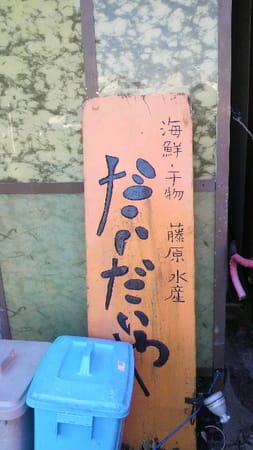 海鮮・干物 藤原水産
だいだいや